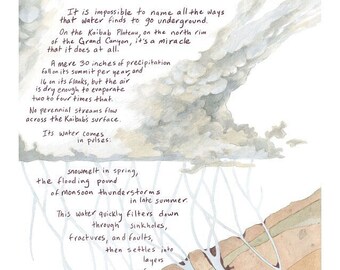 It is impossible to name all the ways
that water finds to go underground.
On the Kaibab Plateau, on the north rim
of the Grand Canyon, it's a miracle
that it does at all.
A mere 30 inches of precipitation
fall on its summit per year, and
16 on its flanks, but the air
is dry enough to evaporate
two to four times that.
No perennial streams flow
across the Kaibab's surface.
Its water comes
in pulses:
snowmelt in spring,
the flooding pound
of monsoon thunderstorms
in late summer.
This water quickly filters down
through sinkholes,
fractures, and faults,
then settles into
layers